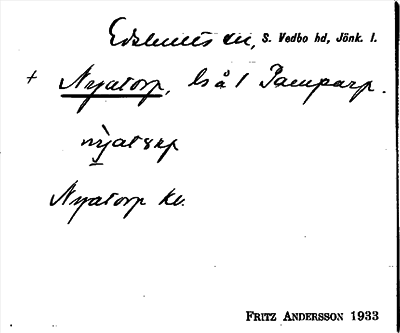 Edshults sn, S. Vedbo hd, Jönk. l.
+ Nyatorp, ls å 1 Pamparp.
nỳatarp
Nyatorp kv.
FRITZ ANDERSSON 1933